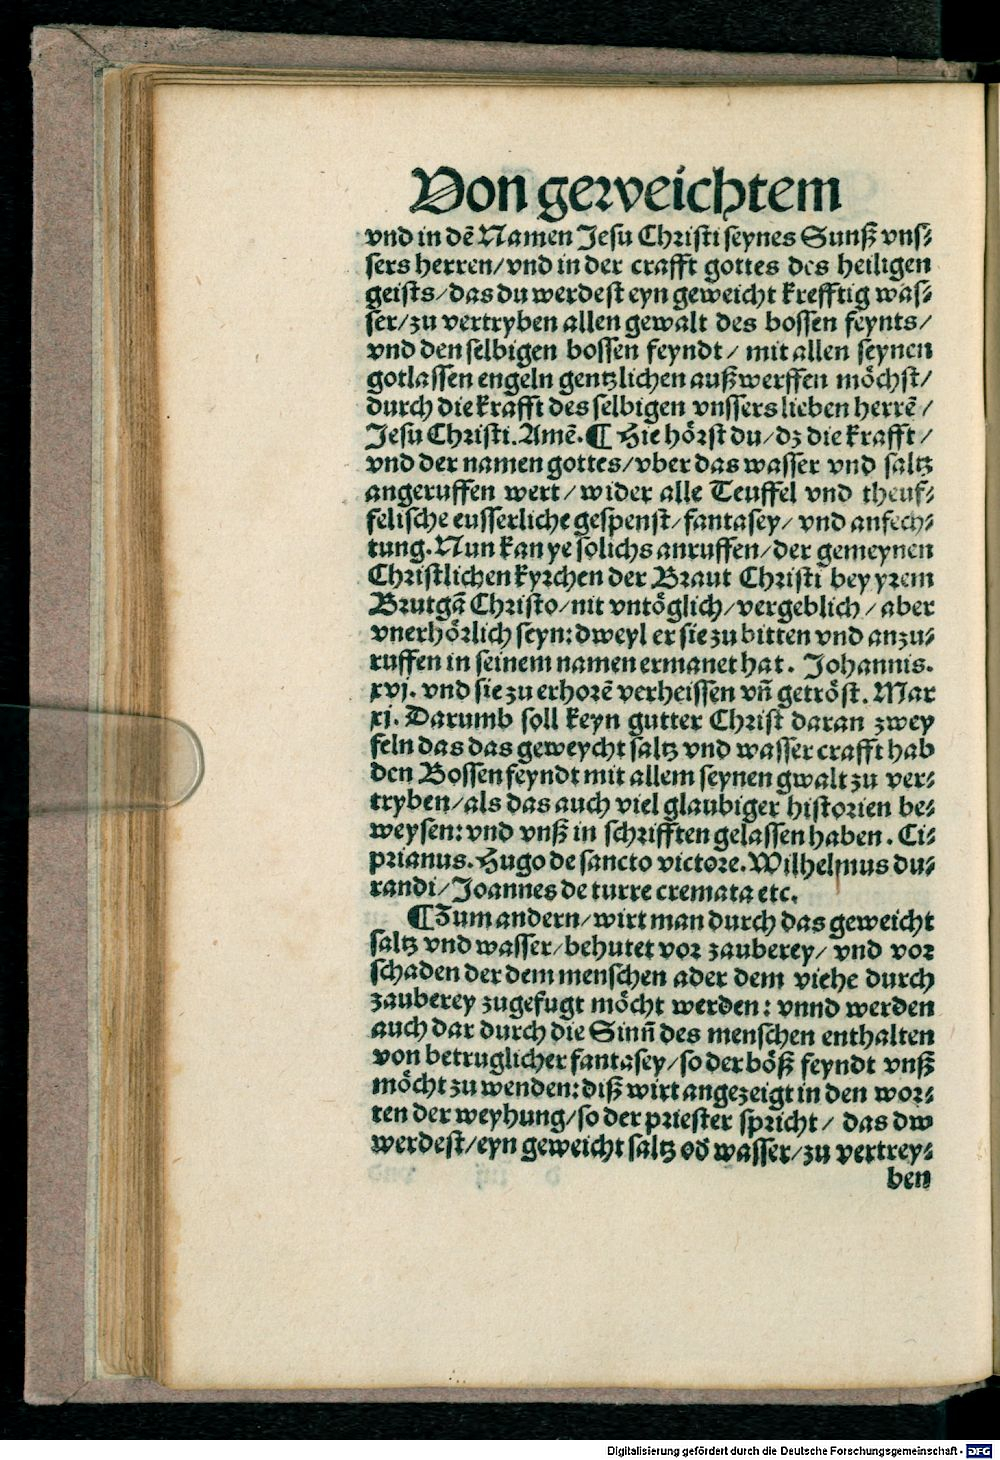 Von geweichtem
vnd in dē Namen Jesu Christi seynes Sunß vns⸗
sers herren/vnd in der crafft gottes des heiligen
geists/das du werdest eyn geweicht krefftig was⸗
ser/zu vertryben allen gewalt des bossen feynts/
vnd den selbigen bossen feyndt/ mit allen seynen
gotlassen engeln gentzlichen außwerffen möchst/
durch die krafft des selbigen vnssers lieben herrē/
Jesu Christi. Amē. ¶ Hie hörst du/dz die krafft/
vnd der namen gottes/vber das wasser vnd saltz
angeruffen wert/wider alle Teuffel vnd theuf⸗
felische eusserliche gespenst/fantasey/ vnd anfech⸗
tung. Nun kan ye solichs anruffen/der gemeynen
Christlichen kyrchen der Braut Christi bey yrem
Brutgā Christo/nit vntöglich/vergeblich/ aber
vnerhörlich seyn: dweyl er sie zu bitten vnd anzu⸗
ruffen in seinem namen ermanet hat. Johannis.
xvj. vnd sie zu erhorē verheissen vn̄ getröst. Mar
xj. Darumb soll keyn gutter Christ daran zwey
feln das das geweycht saltz vnd wasser crafft hab
den Bossen feyndt mit allem seynen gwalt zu ver⸗
tryben/als das auch viel glaubiger historien be⸗
weysen: vnd vnß in schrifften gelassen haben. Ci⸗
prianus. Hugo de sancto victore. Wilhelmus du⸗
randi/Joannes de turre cremata etc.
¶ Zum andern/wirt man durch das geweicht
saltz vnd wasser/behutet vor zauberey/ vnd vor
schaden der dem menschen ader dem viehe durch
zauberey zugefugt möcht werden: vnnd werden
auch dar durch die Sinn̄ des menschen enthalten
von betruglicher fantasey/so der böß feyndt vnß
möcht zu wenden: diß wirt angezeigt in den wor⸗
ten der weyhung/so der priester spricht/ das dw
werdest/eyn geweicht saltz od̄ wasser/zu vertrey⸗
ben
Digitalisierung gefördert durch die Deutsche Forschungsgemeinschaft - DFG